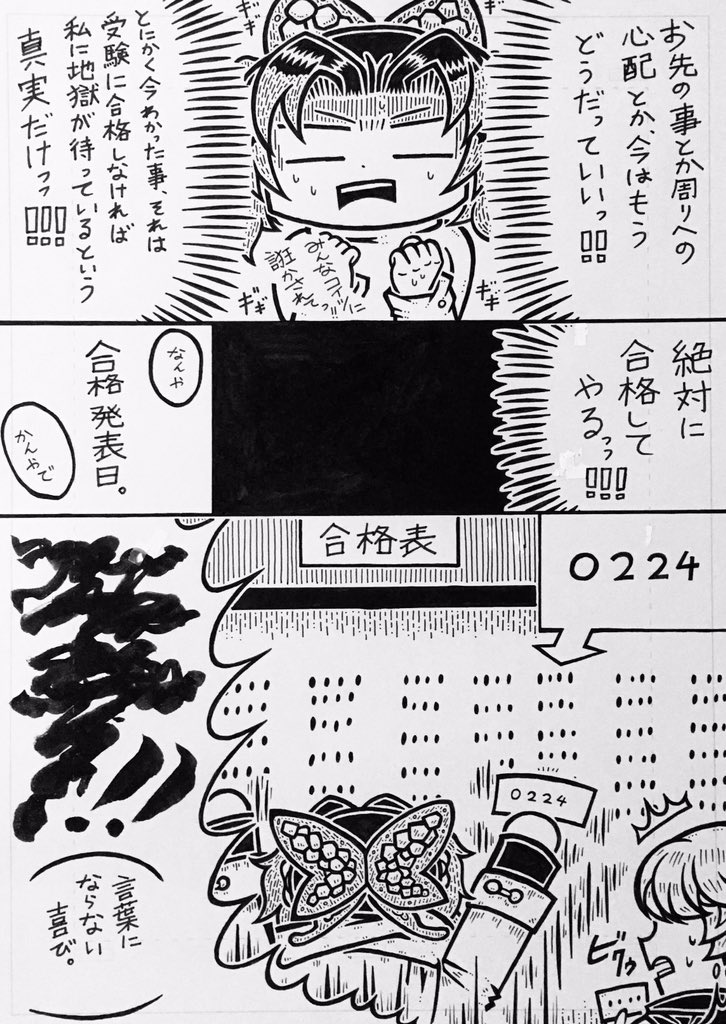 お先の事とか周りへの
心配とか、今はもう
どうだっていいっ!!
みんなコイツに
誑かされてっ!!
ギギ
ギギ
とにかく今わかった事、それは
受験に合格しなければ
私に地獄が待っているという
真実だけっっ!!!
絶対に
合格して
やるっっ!!!
なんや
かんやで
合格発表日。
0224
合格表
0224
ビクゥ
!!
言葉に
ならない
喜び。